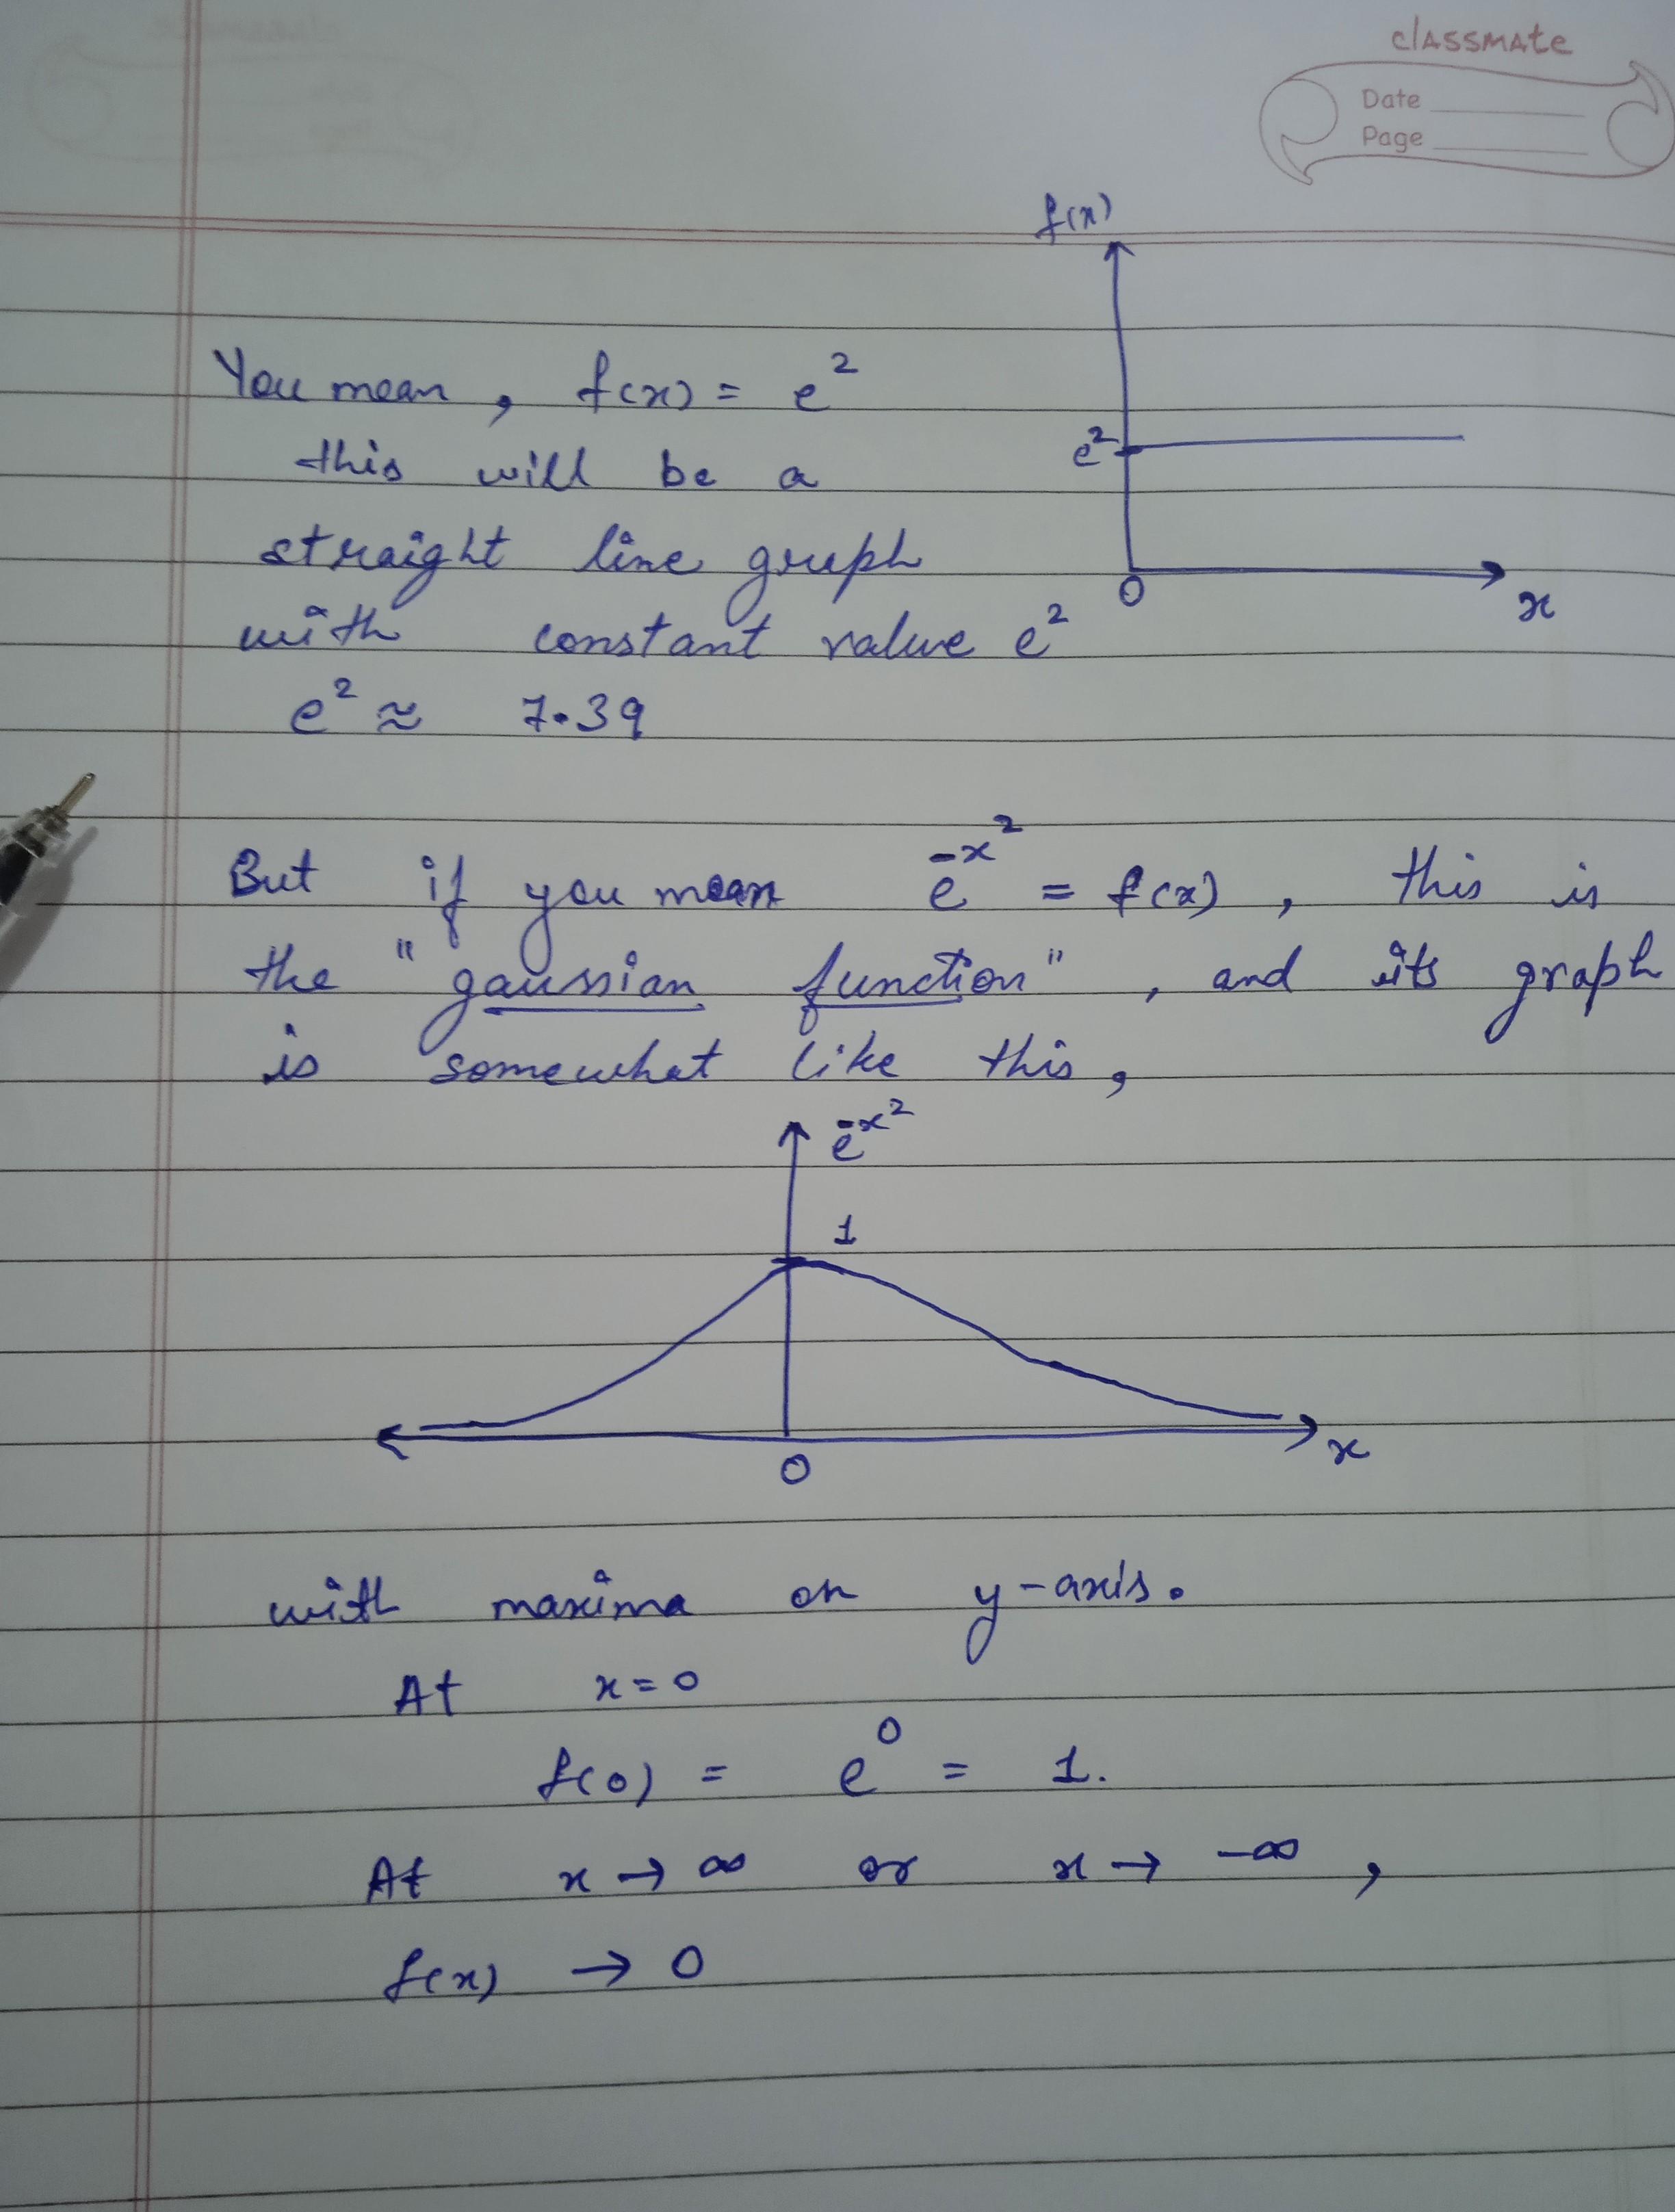 classmate
Date
Page
f(x)
You mean, f(x) = e²
e²
this will be a
straight line graph
0
x
with constant value e²
e² ≈ 7.39
But if you mean e^-x² = f(x), this is
the "gaussian function", and its graph
is somewhat like this,
e^-x²
1
0
x
with maxima on y-axis.
At x=0
f(0) = e⁰ = 1.
At x → ∞ or x → -∞,
f(x) → 0